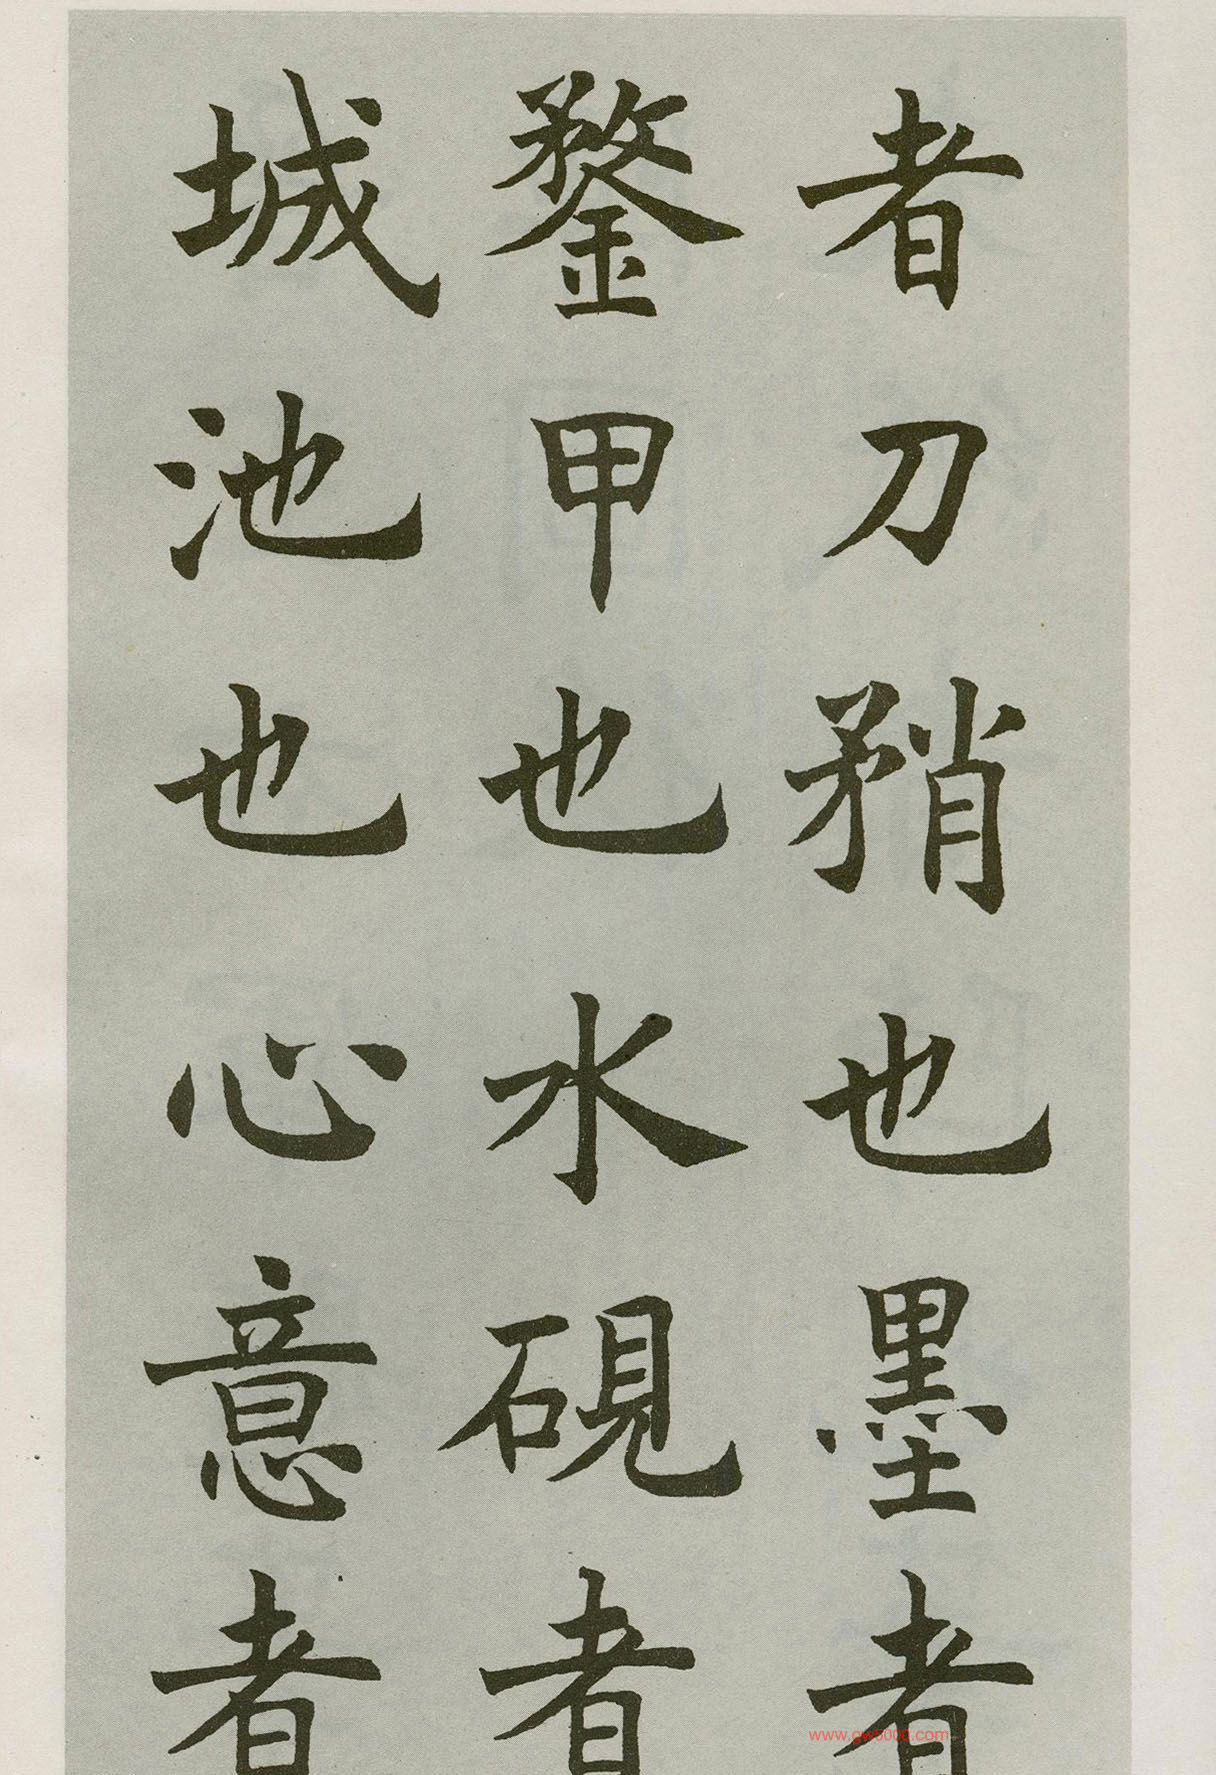 者刀矟也墨者
鍪甲也水硯者
城池也心意者
www.gw5000.com